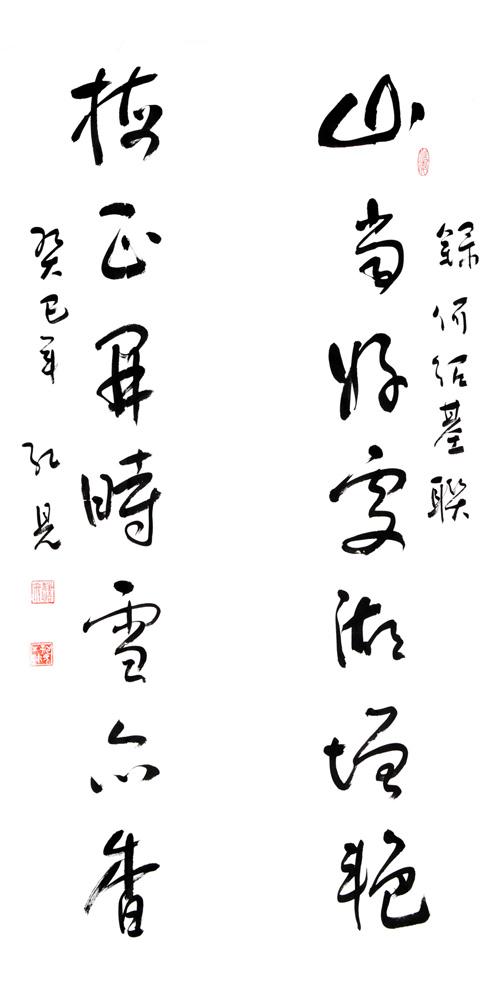 錄何紹基聯
山當好處湖增艷
梅正開時雪亦香
癸巳年 弘晃